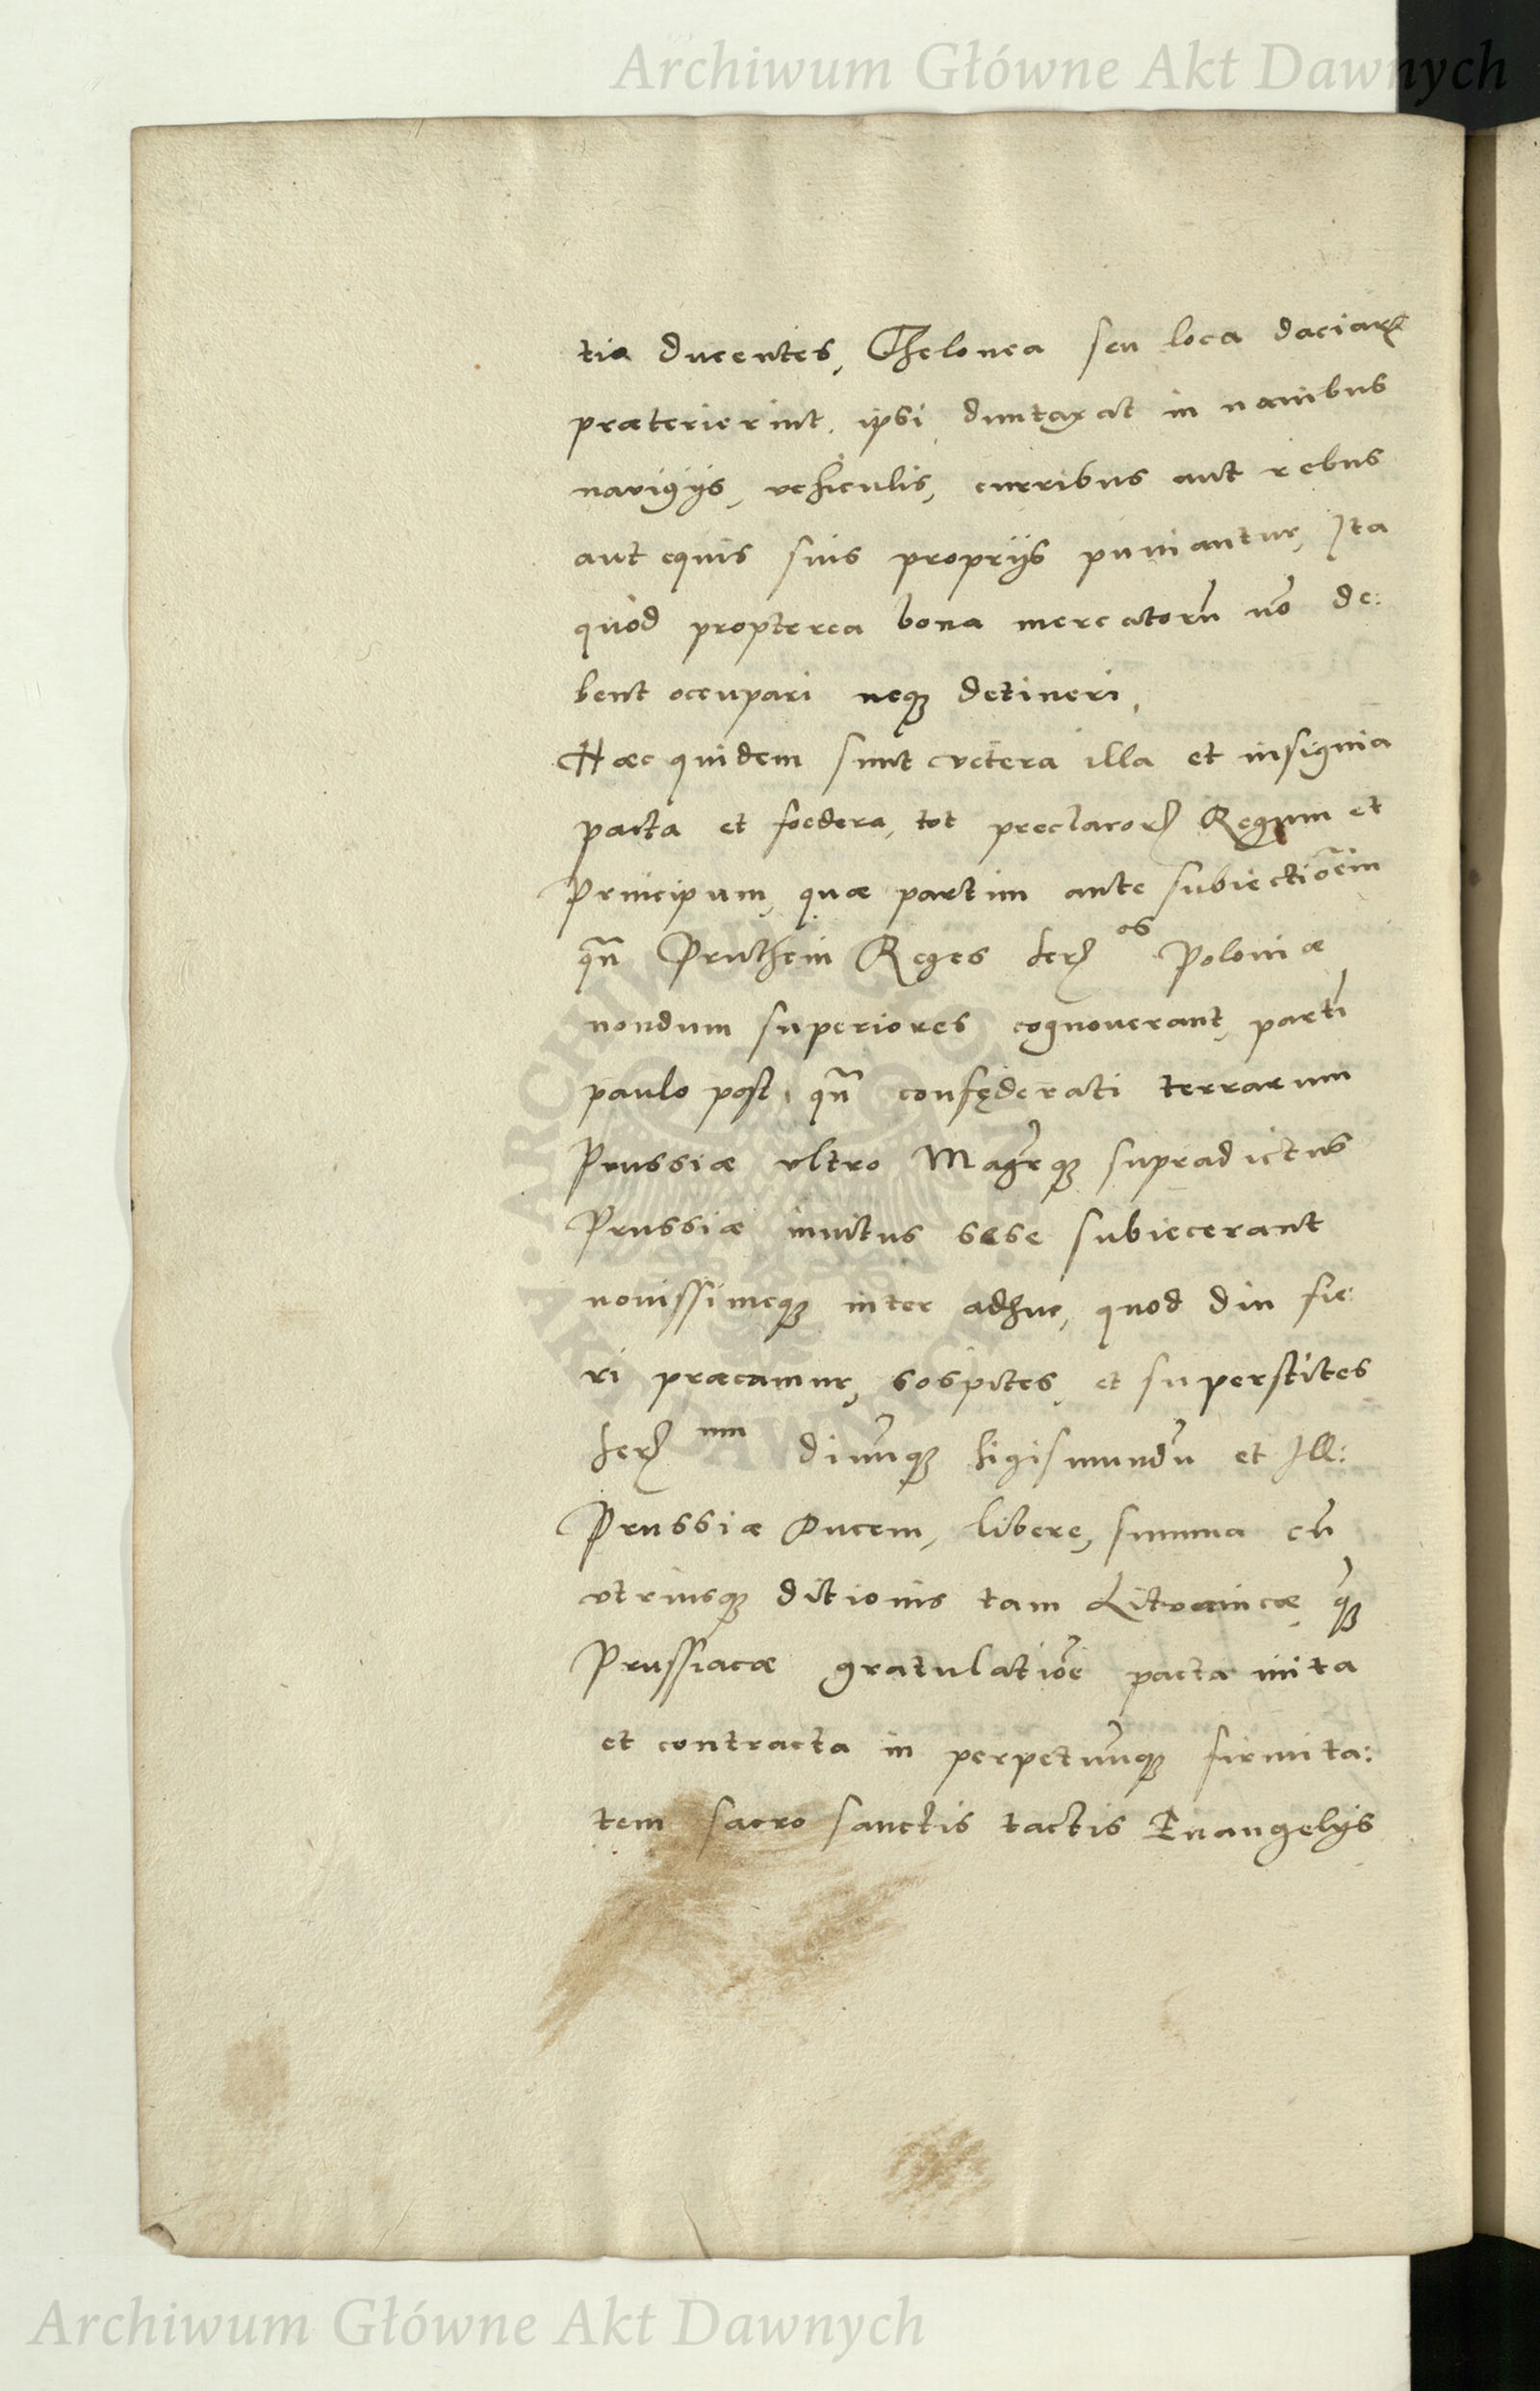 Archiwum Główne Akt Dawnych
tia ducentes, Thelonea seu loca daciarꝝ
præterierint, ipsi duntaxat in nauibus
navigijs, vehiculis, curribus aut rebus
aut equis suis proprijs puniantur, Ita
quod propterea bona mercatorũ nõ de:
bent occupari neqꝫ detineri,
Hæc quidem sunt vetera illa et insignia
pacta et foedera, tot preclarorꝝ Regum et
Principum, quæ partim ante subiectiõem
qñ Pruthem Reges Serꝭ os Poloniæ
nondum superiores cognouerant, partĩ
paulo post, qñ confęderati terrarum
Prussiæ vltro Magrqꝫ supradictus
Prussiæ inuitus sese subiecerant
nouissimeqꝫ inter adhuc, quod diu fie
ri præcamur, sospites, et superstites
Serꝭ mum diuũqꝫ Sigismundũ et Ill:
Prussiæ Ducem, libere, summa cũ
vtriusqꝫ ditionis tam Lituanicæ qꝫ
Prussiacæ gratulatiõe pacta inita
et contracta in perpetuũqꝫ firmita:
tem sacro sanctis tactis Euangelijs
ARCHIWUM GŁÓWNE AKT DAWNYCH
Archiwum Główne Akt Dawnych